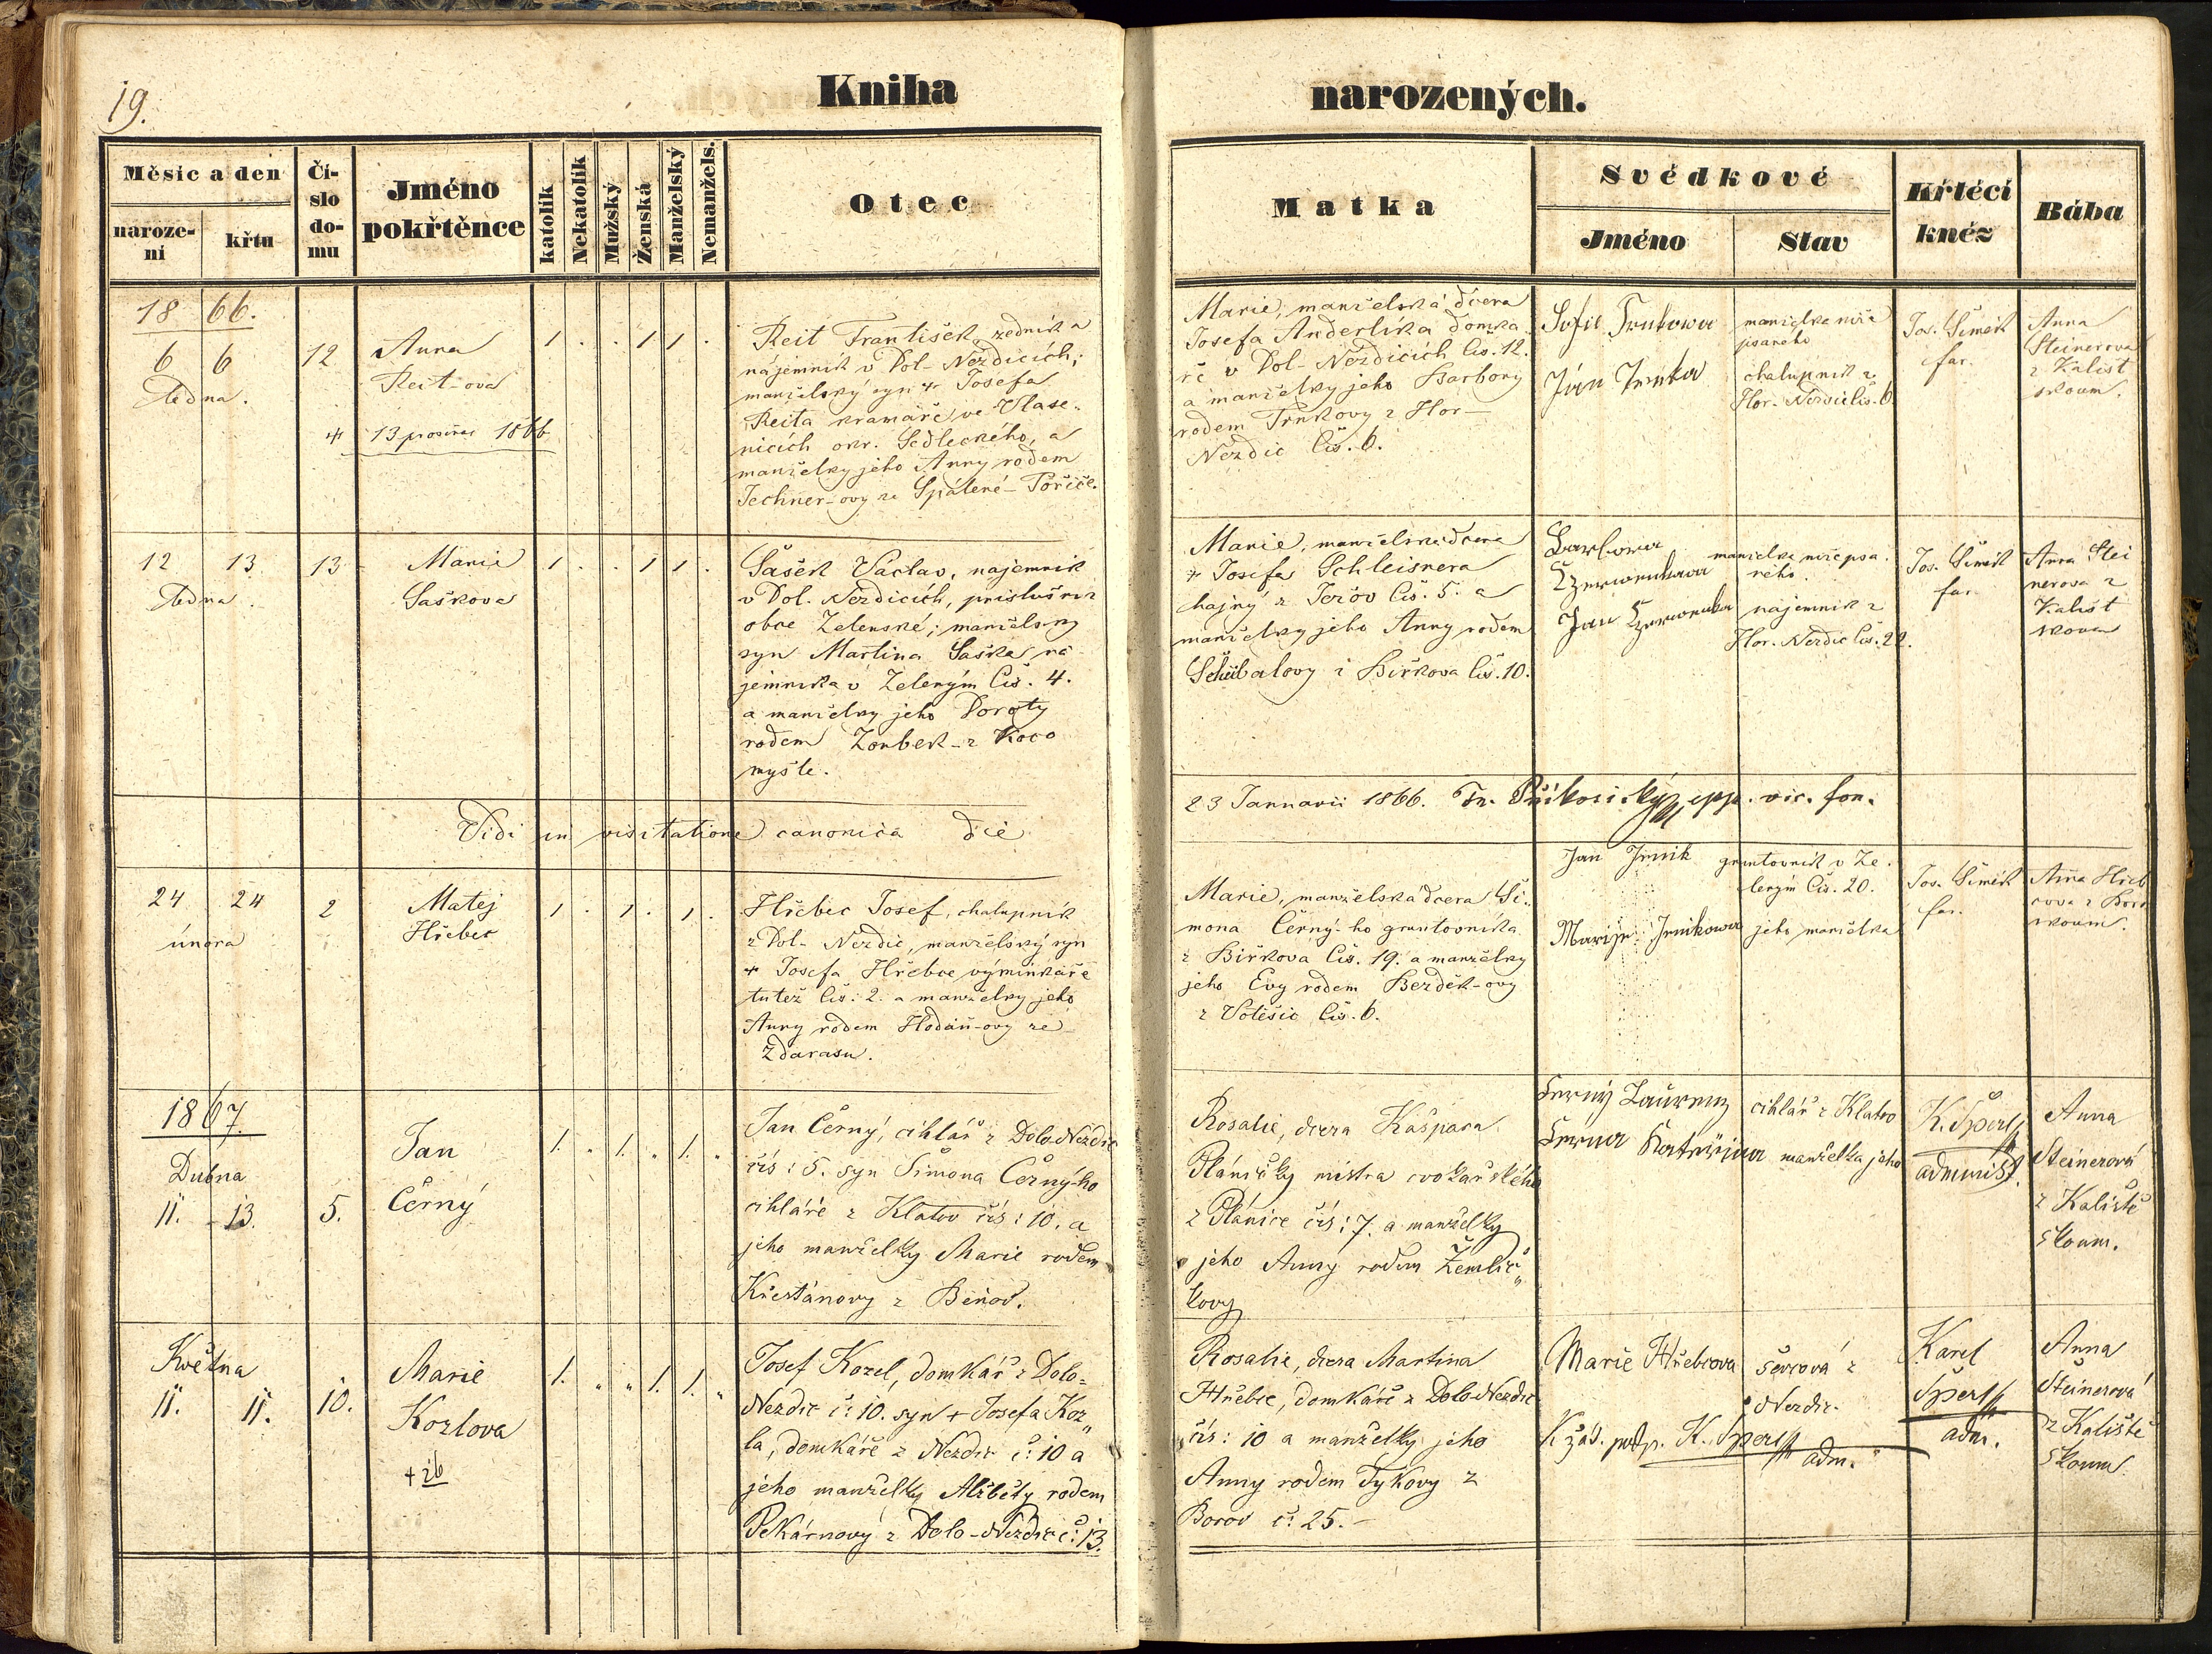 19.
Kniha
narozených.
Měsíc a den
naroze-
ní
křtu
Čí-
slo
do-
mu
Jméno
pokřtěnce
katolík
Nekatolík
Mužský
Ženská
Manželský
Nemanžels.
Otec
Matka
Svědkové
Jméno
Stav
Křtící
kněz
Bába
1866.
6 6
ledna.
12
Anna
Reit-ova
+ 13 prosince 1866
1 . . 1 1 .
Reit František, zedník a
nájemník v Dol- Nezdicích;
manželský syn + Josefa
Reita kramáře ve Vlase-
nicích okr. Sedleckého, a
manželky jeho Anny rodem
Techner-ovy ze Spálené- Poříče.
Marie, manželská dcera
Josefa Anderlíka domka
ře v Dol- Nezdicích čís. 12.
a manželky jeho Barbory
rodem Trnkovy z Hor-
Nezdic čís. 6.
Sofie Trnkowa
Ján Trnka
manželka níže
psaného
chalupník z
Hor. Nezdic čís. 6.
Jos. Šimek
far.
Anna
Steinerova
z Kališt
zkoum.
12 13
ledna.
13
Marie
Šaškova
1 . . 1 1 .
Šašek Václav, nájemník
v Dol. Nezdicích, příslušník
obce Zelenské; manželský
syn Martina Šaška ná-
jemníka v Zeleným čís. 4.
a manželky jeho Doroty
rodem Zoubek- z Koco
myšle.
Marie, manželská dcera
+ Josefa Schleisnera
hajný z Ježov čís. 5. a
manželky jeho Anny rodem
z Biřkova čís. 10.
Barbora
Jan
manželka níže psa-
ného.
nájemník z
Hor. Nezdic čís. 22.
Jos. Šimek
far.
Anna Stei
nerova z
Kališt
zkoum
Vidi in visitatione canonica die
23 Januarii 1866. epp. vic. for.
24 24
února
2
Matej
Hřebec
1 . 1 . 1 .
Hřebec Josef, chalupník
z Dol- Nezdic, manželský syn
+ Josefa Hřebce výminkáře
tutéž čís. 2. a manželky jeho
Anny rodem Hodáň-ovy ze
Zdarasu.
Marie, manželská dcera Ši-
mona Černý-ho gruntovníka
z Biřkova čís. 19. a manželky
jeho Evy rodem Bezděk-ovy
z Votěšic čís. 6.
Jan Jrnik
Marije Jrnikowa
gruntovník v Ze-
leným čís. 20.
jeho manželka
Jos. Šimek
far.
Anna Hřeb
cova z Bor
zkoum.
1867.
Dubna
11. 13.
5.
Jan
Černý
1. „ 1. „ 1. „
Jan Černý, cihlář z Dolo-Nezdic
čís: 5. syn Šimona Černý-ho
cihláře z Klatov čís: 10. a
jeho manželky Marie rodem
Křesťanovy z Beňov.
Rosalie, dcera Kašpara
Pláničky mistra cvokařského
z Plánice čís: 7. a manželky
jeho Anny rodem Žemlič„
kovy
Černý Laurenz
Černa Katřijna
cihlář z Klatov
manželka jeho
K. Šperl
administ.
Anna
Steinerová
z Kaliště
zkoum.
Května
11. 11.
10.
Marie
Kozlova
+ 26
1. „ „ 1. 1. „
Josef Kozel, domkář z Dolo-
Nezdic č: 10. syn + Josefa Koz„
la, domkáře z Nezdic č: 10 a
jeho manželky Alžběty rodem
Pekárnovy z Dolo-Nezdic č: 13.
Rosalie, dcera Martina
Hřebec, domkáře z Dolo-Nezdic
čís: 10 a manželky jeho
Anny rodem Tykovy z
Borov č: 25.-
Marie Hřebcova
K žád. podp. K. Šperl adm.
ševcová z
Nezdic.
Karel
Šperl
adm.
Anna
Steinerová
z Kaliště
zkoum.